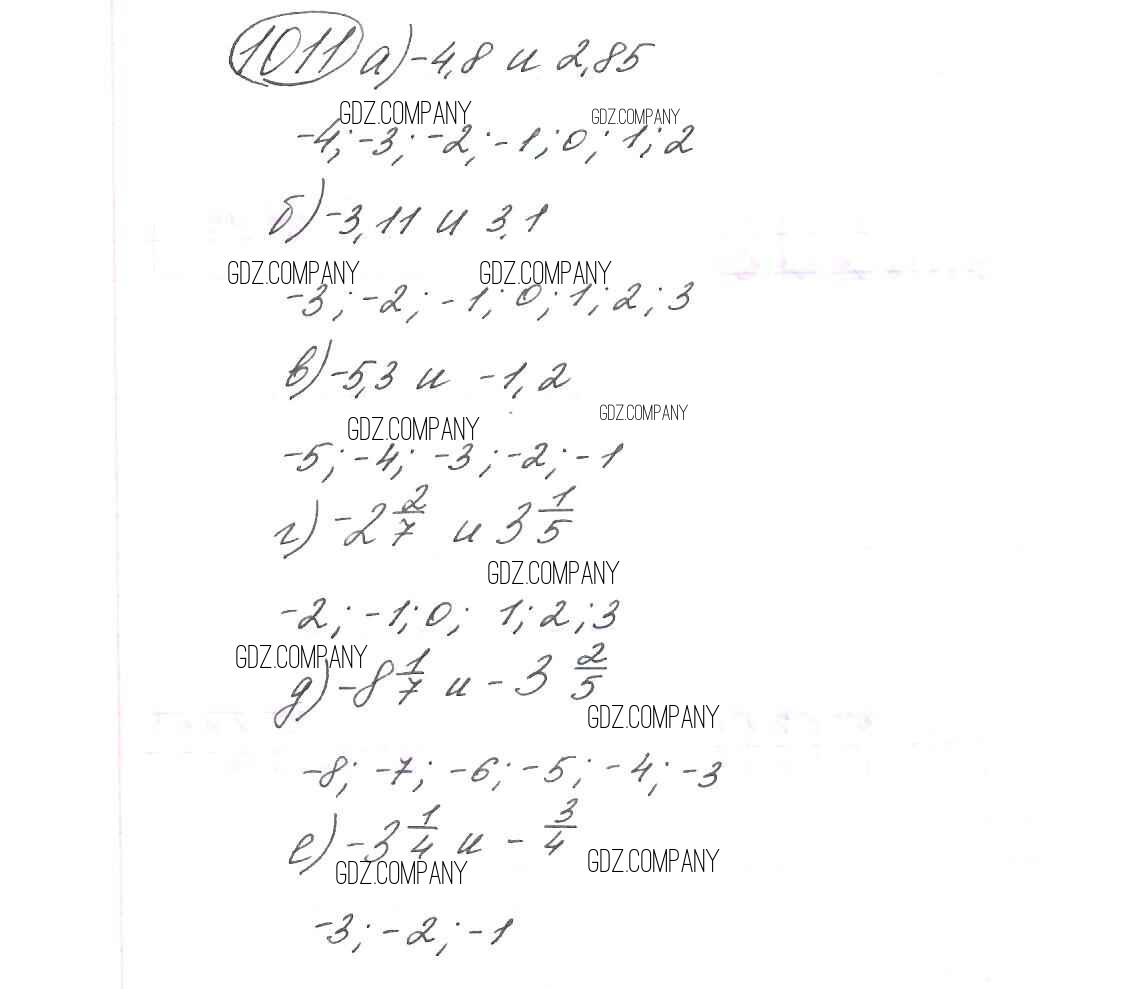 1011 а) -4,8 и 2,85
GDZ.COMPANY GDZ.COMPANY
-4; -3; -2; -1; 0; 1; 2
б) -3,11 и 3,1
GDZ.COMPANY GDZ.COMPANY
-3; -2; -1; 0; 1; 2; 3
в) -5,3 и -1,2
GDZ.COMPANY GDZ.COMPANY
-5; -4; -3; -2; -1
г) -2 2/7 и 3 1/5
GDZ.COMPANY
-2; -1; 0; 1; 2; 3
GDZ.COMPANY
д) -8 1/7 и -3 2/5
GDZ.COMPANY
-8; -7; -6; -5; -4; -3
е) -3 1/4 и - 3/4
GDZ.COMPANY GDZ.COMPANY
-3; -2; -1